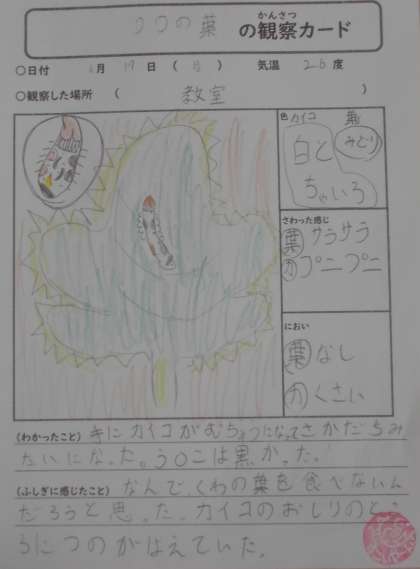 クワの葉 の観察カード
かんさつ
○日付 6月 19日 ( 月 ) 気温 26度
○観察した場所 ( 教室 )
色 カイコ 葉
白と みどり
ちゃいろ
さわった感じ
葉 サラサラ
カ プニプニ
におい
葉 なし
カ くさい
(わかったこと) カイコがむちゅうになってさかだちみ
たいになった。うんこは黒かった。
(ふしぎに感じたこと) なんで、くわの葉を食べないん
だろうと思った。カイコのおしりのとこ
ろにつのがはえていた。